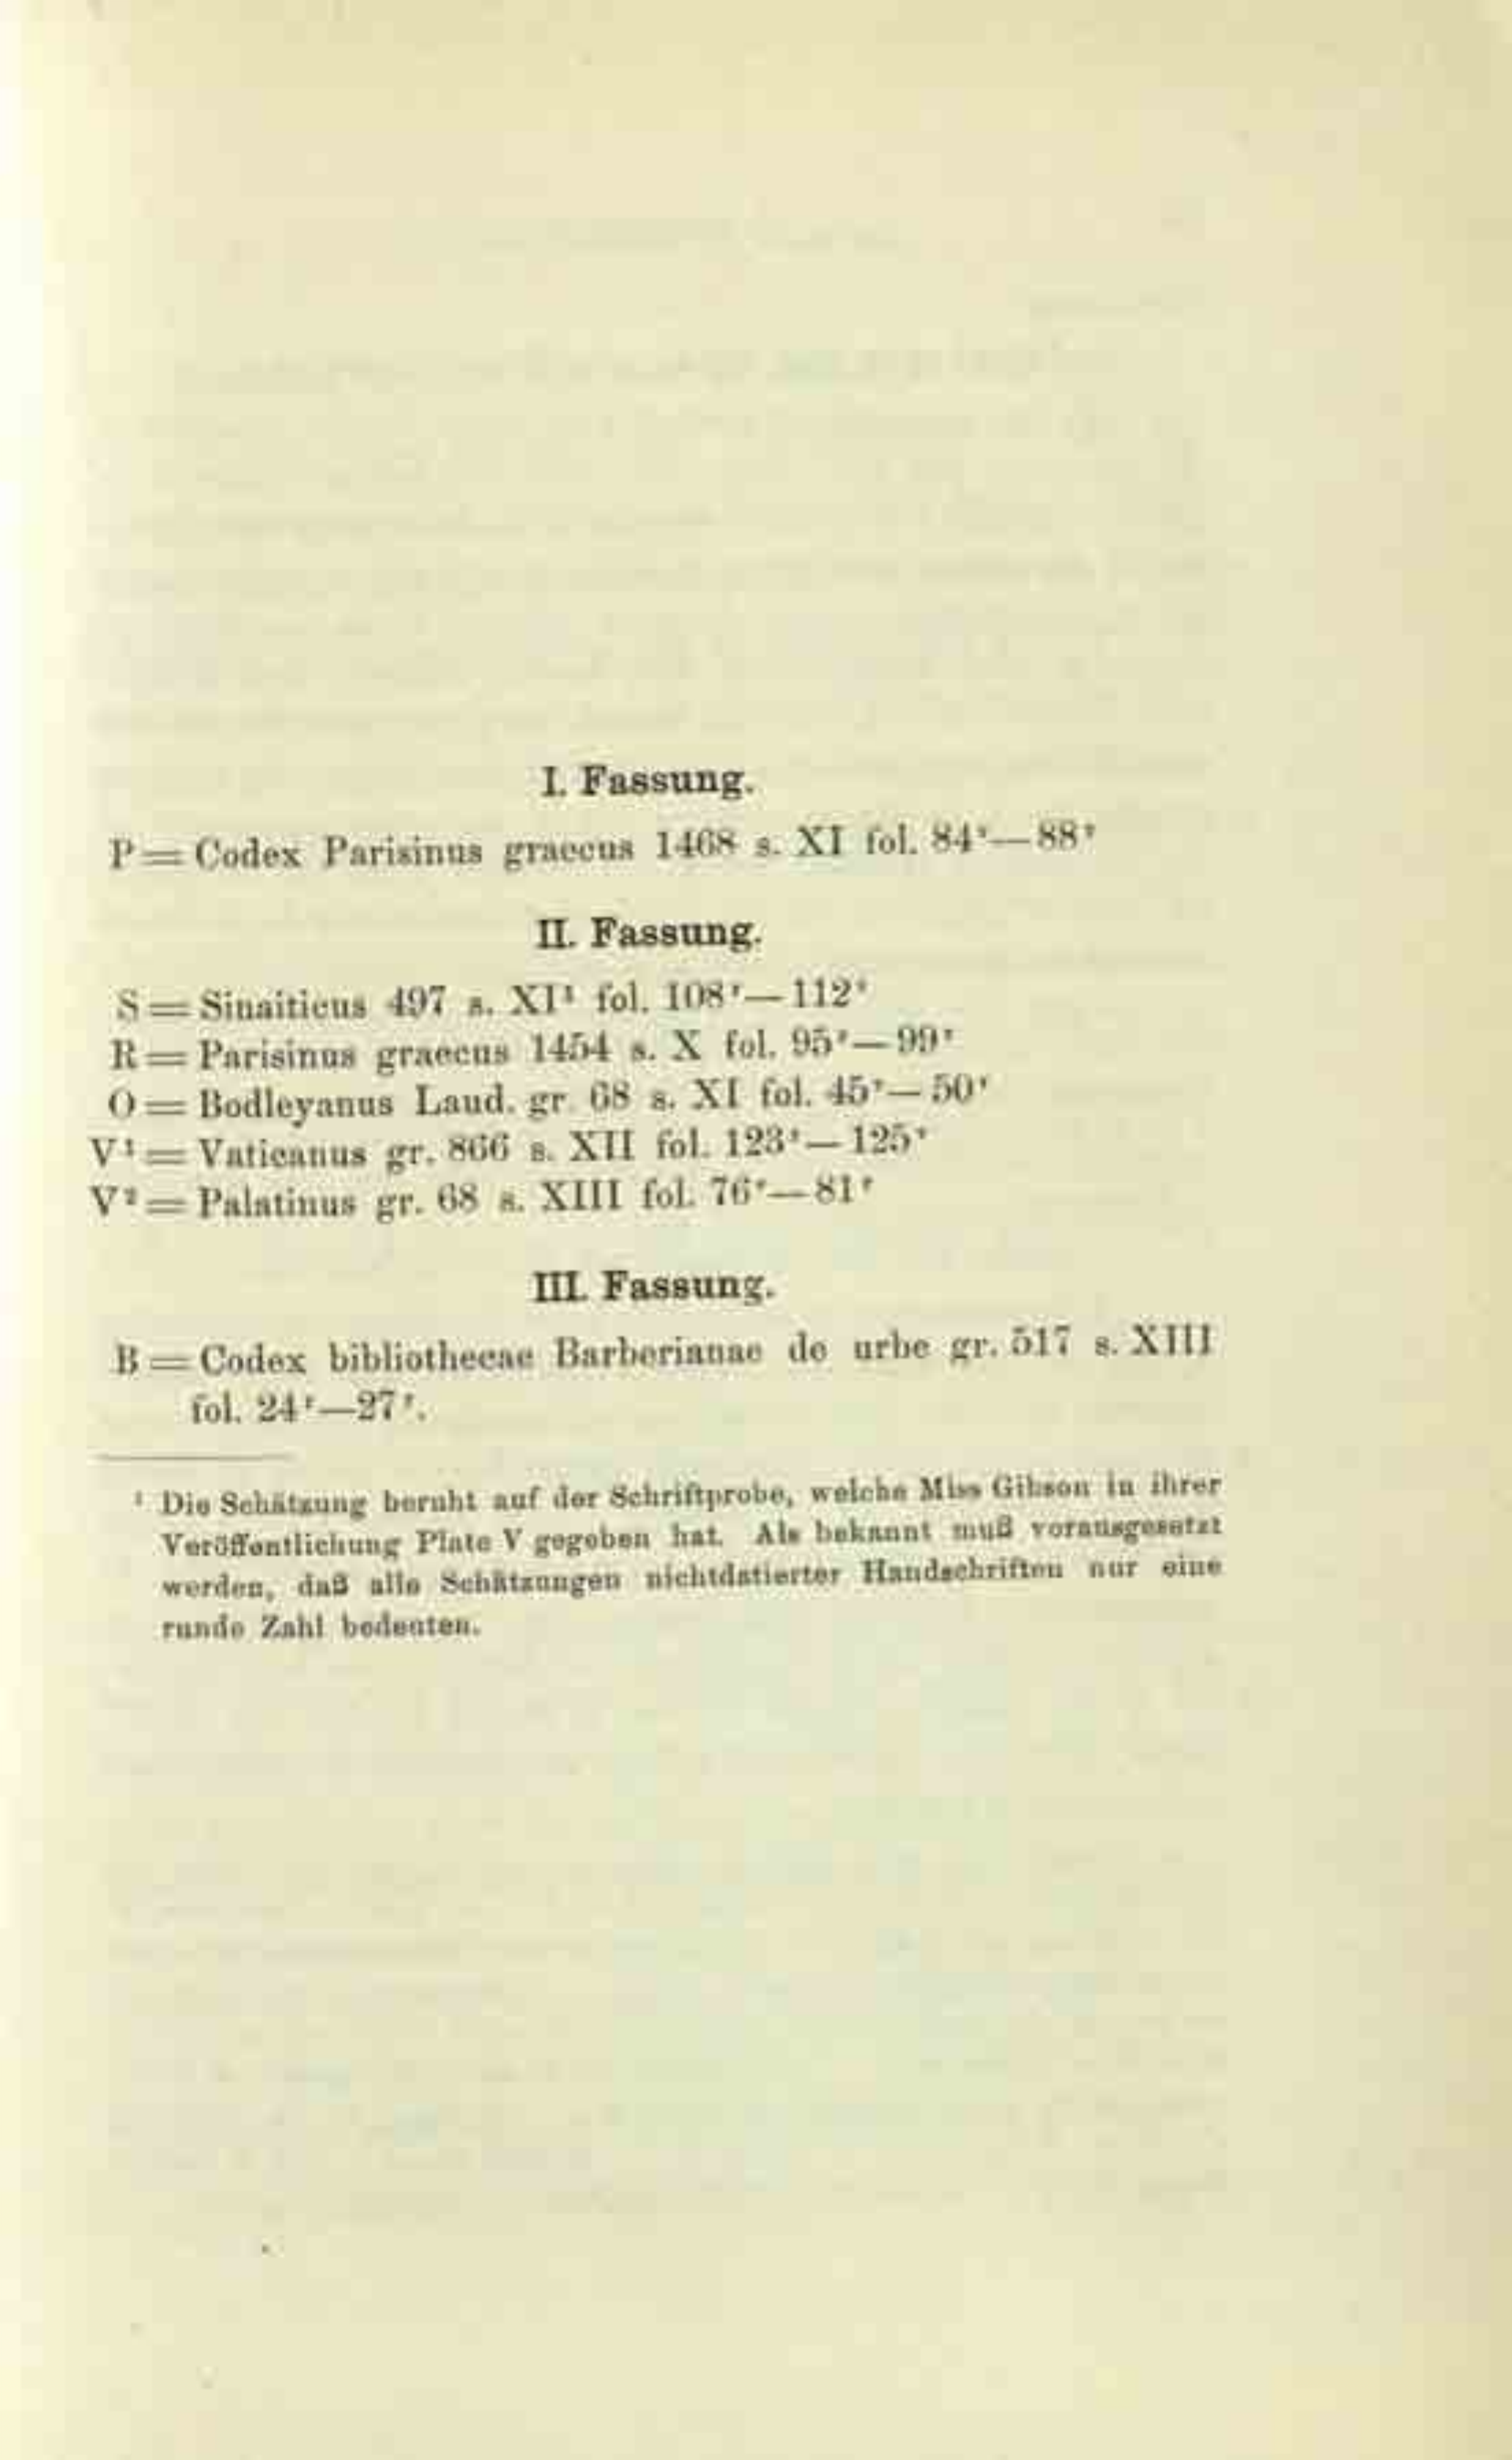 I. Fassung.
P = Codex Parisinus graecus 1468 s. XI fol. 84—88
II. Fassung.
S = Sinaiticus 497 s. XI¹ fol. 108ʳ—112
R = Parisinus graecus 1454 s. X fol. 95—99
O = Bodleyanus Laud. gr. 68 s. XI fol. 45—50
V¹ = Vaticanus gr. 866 s. XII fol. 123—125
V² = Palatinus gr. 68 s. XIII fol. 76ʳ—81
III. Fassung.
B = Codex bibliothecae Barberianae de urbe gr. 517 s. XIII
fol. 24ʳ—27.
¹ Die Schätzung beruht auf der Schriftprobe, welche Miss Gibson in ihrer
Veröffentlichung Plate V gegeben hat. Als bekannt muß vorausgesetzt
werden, daß alle Schätzungen nichtdatierter Handschriften nur eine
runde Zahl bedeuten.